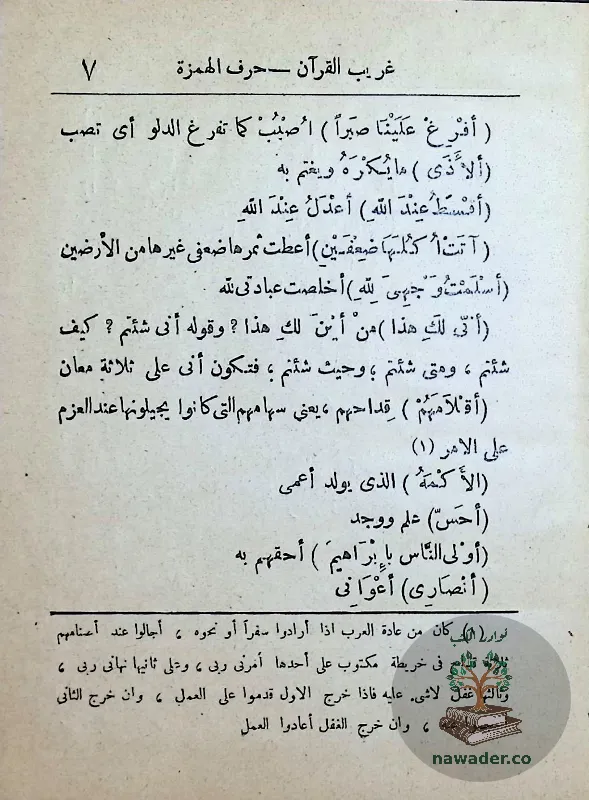 غريب القرآن — حرف الهمزة ٧
( أَفْرِغْ عَلَيْنَا صَبْراً ) اُصْبُبْ كما تفرغ الدلو أى تصب
( ألأَذَى ) مايُكْرَهُ ويغتم به
( أَقْسَطُ عِنْدَ اللهِ ) أَعْدَلُ عِنْدَ اللهِ
( آتَتْ أُكُلَهَا ضِعْفَيْنِ ) أعطت ثمرها ضعفى غيرها من الأرضين
( أَسْلَمْتُ وَجْهِىَ لِلهِ ) أخلصت عبادتى لله
( أَنّى لَكِ هذا ) مِنْ أَيْنَ لكِ هذا ? وقوله أنى شئتم ? كيف
شئتم ، ومتى شئتم ، وحيث شئتم ، فتكون أنى على ثلاثة معان
( أَقْلَامَهُمْ ) قِداحهم ، يعني سهامهم التى كانوا يجيلونها عند العزم
على الامر (١)
( الأَكْمَهُ ) الذى يولد أعمى
( أَحَسّ ) علم ووجد
( أَوْلى النَّاس بإِبْرَاهِيمَ ) أحقهم به
( أَنْصَارِى ) أَعْوَانِى
(١) كان من عادة العرب اذا أرادوا سفراً أو نحوه ، أجالوا عند أصنامهم
نوادر الكتب
ثلاثة قداح فى خريطة مكتوب على أحدها أمرنى ربى ، وعلى ثانيها نهانى ربى ،
وثالثها غفل لاشى. عليه فاذا خرج الاول قدموا على العمل ، وان خرج الثانى
، وان خرج الغفل أعادوا العمل
nawader.co